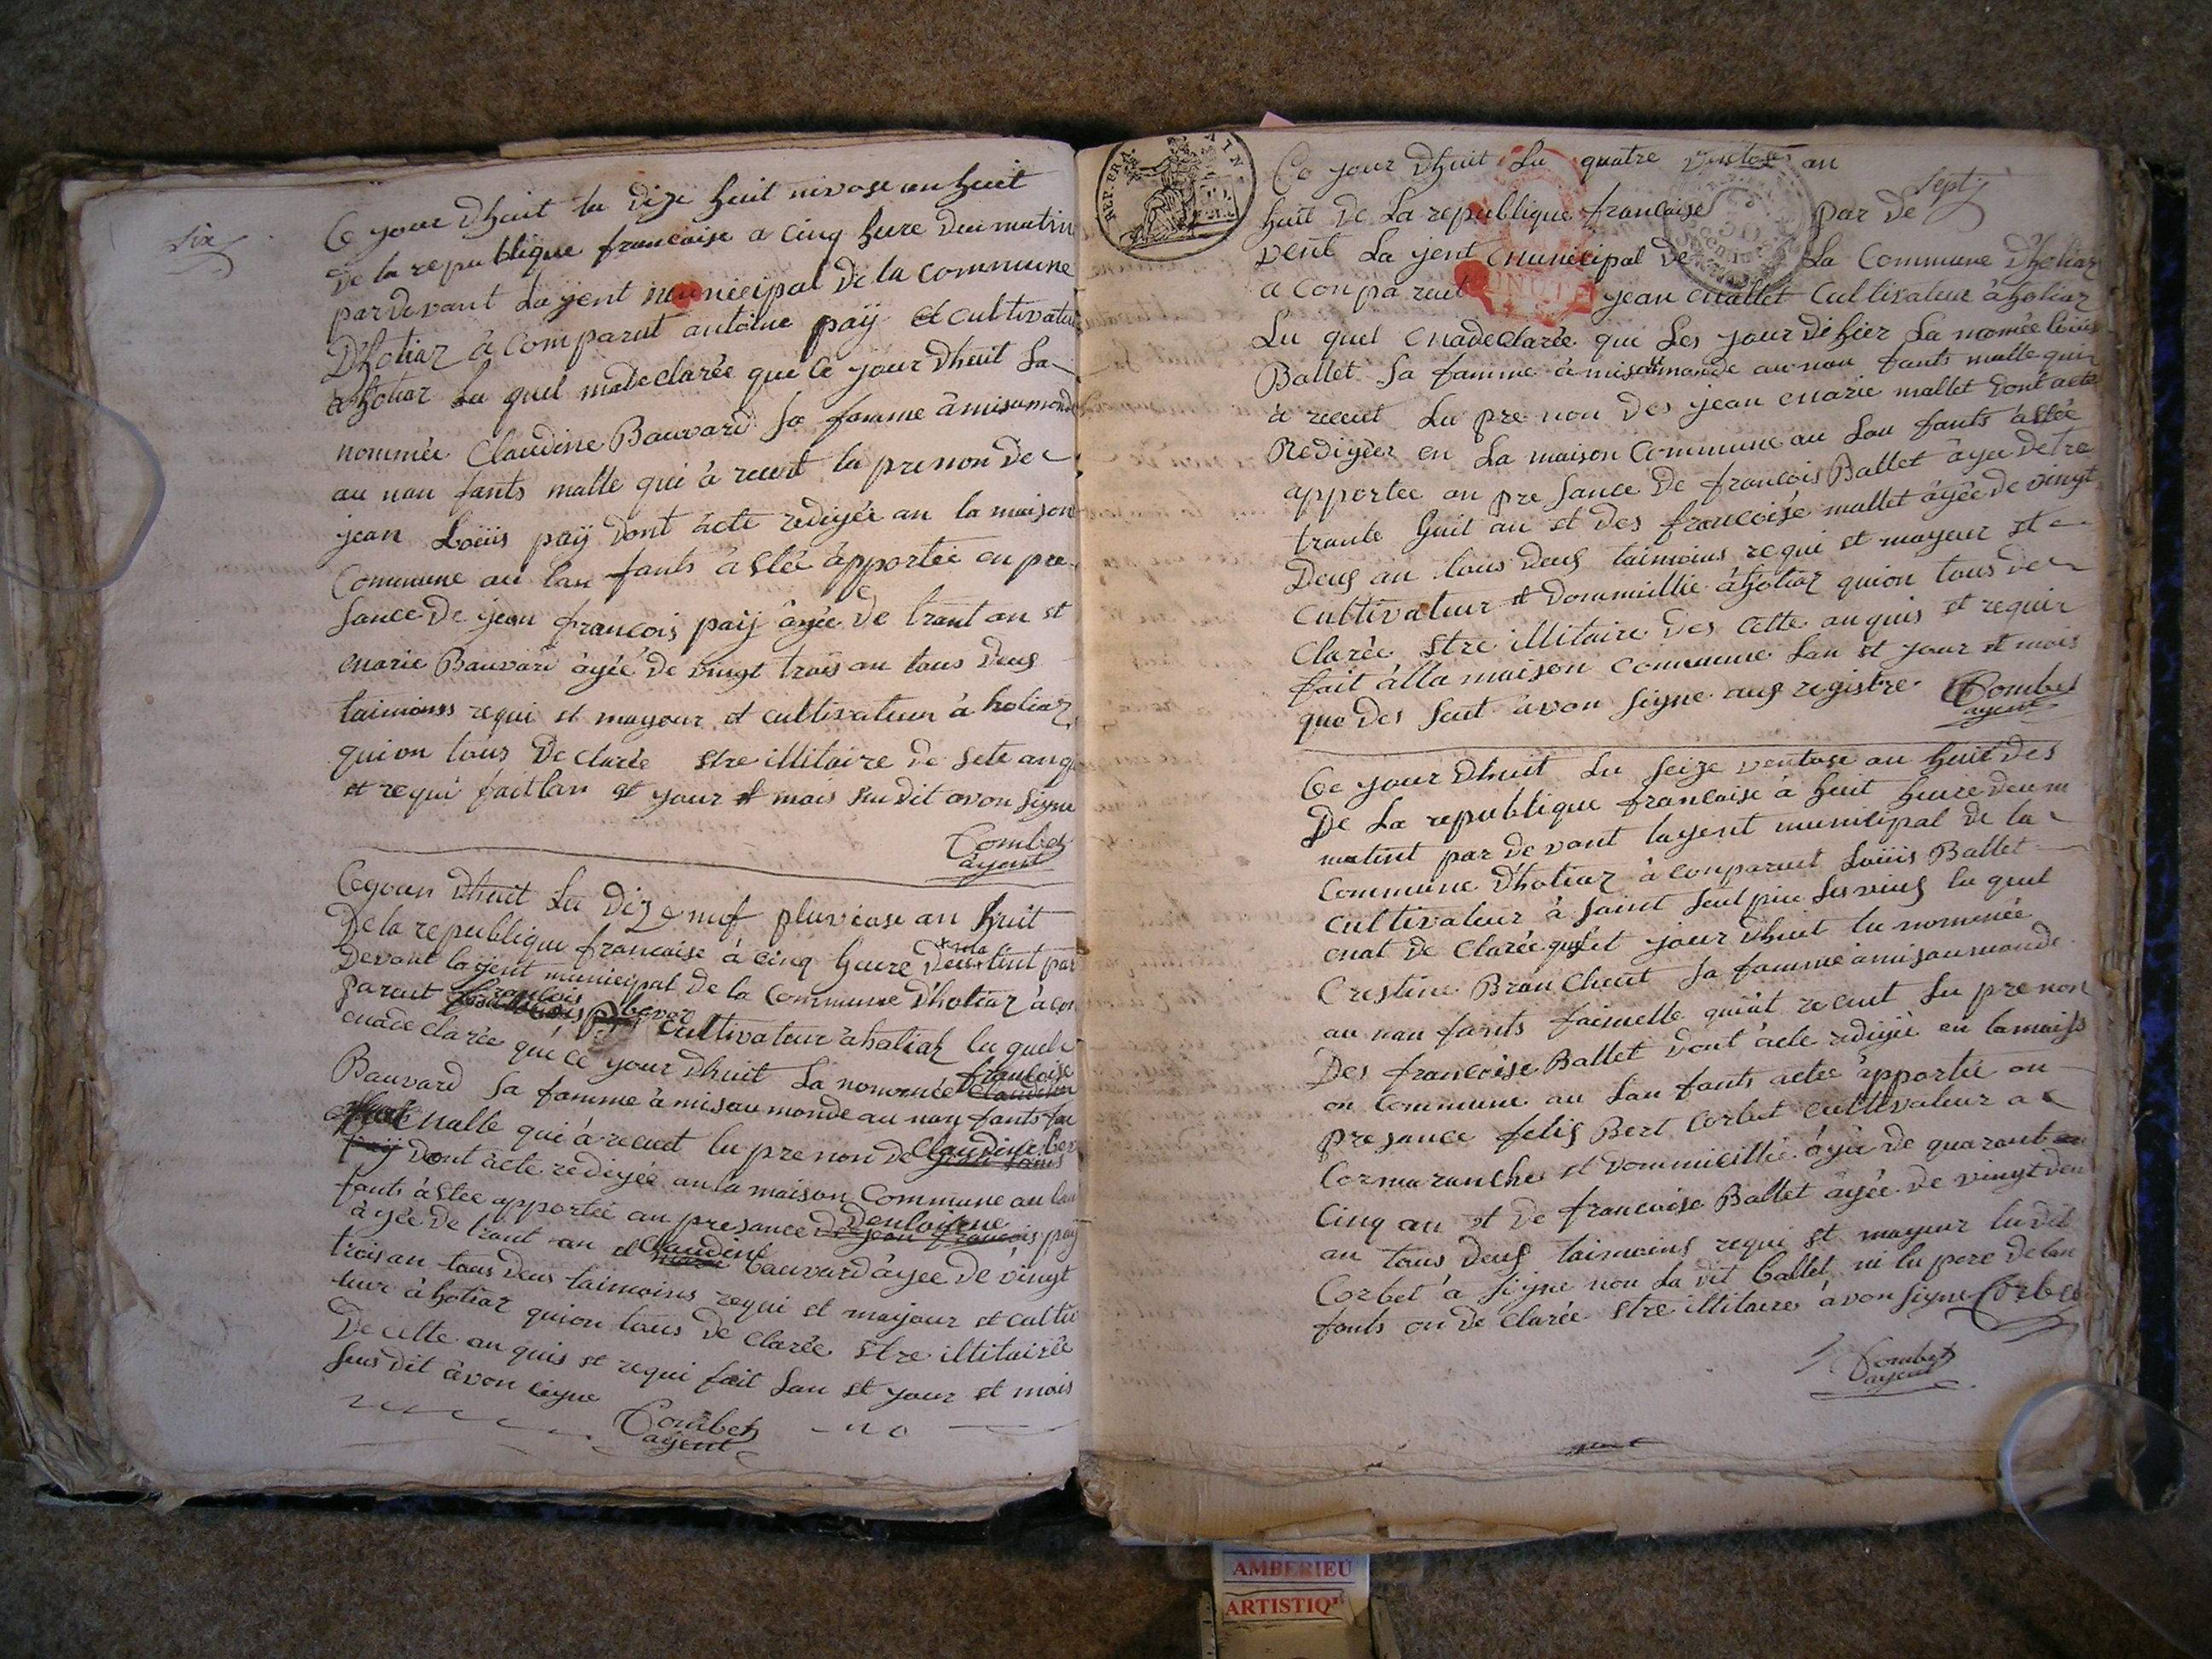 six
Ce jour dhuit lu dize huit nivose an huit
De la republique francaise a cinq hure deu matin
pardevant Lajent municipal De la commune
Dhotiaz à comparut antoine paÿ et cultivateu
a hotiaz Lu quel ma declarée que Ce jour Dhuit La
nommée Claudine Bauvard sa famme à mis au monde
au nau fants malle qui à recut lu prenon De
jean Loüis paÿ Dont àcte redigée an la maison
Commune au lau fants à Stée àpportée en pre
sance De jean francois paÿ âgée De trant an et
marie Bauvard àgée de vingt trois an tous deus
taimoins requi et mayour et cultivateur à hotiaz
qui on tous De clarée stre illitaire de sete anq
et requi fait lan et jour et mois su dit avon signe
Combet
àjent
Ce jour Dhuit Lu Dize neuf pluviose an huit
De la republique francaise à cinq heure Deu matint par
Devant lajent municipal de la Commune D'hotiaz à con
parut francois bevar cultivateur à hotiaz lu quel
ma de clarée que Ce jour Dhuit La nommée francoise
Bauvard sa famme à mis au monde au nau fants fai
malle qui à recut lu pre non De Claudine bev
Dont àcte redigée an la maison Commune au lau
fants à Stée apportée au presance Denloisene paÿ
àgée De trant an et Claudine bauvard àgee De vingt
trois an tous deus taimoins requi et majour et cultiv
teur à hotiaz qui on tous de Clarée stre illitairée
De cette an quis et requi fait Lan et jour et mois
Sus dit àvon signe
Combet
agent
REP. FRA.
sept
Ce jour Dhuit Lu quatre ventose an
huit De La republique francaise par De
vent La jent municipal De La Commune Dhotiaz
a Conparut jean mallet Cultivateur à hotiaz
Lu quel ma de Clarée que Les jour dihier La nomée louis
Ballet Sa famme à mis au monde au nau fants malle qui
à recut Lu pre non Des jean marie mallet Dont acte
Redigéez en La maison Commune au Lau fants à stée
apportee an pre sance De francois Ballet âgee Detre
trante huit an et des francoise mallet âgêe de vingt
Deus an tous deus taimoins requi et mayeur et
Cultivateur et dommicillie à hotiaz qui on tous de
Clarée stre illitaire Des Cette anquis et requir
fait àlla maison Commune Lan et jour et mois
que Des seut àvon signe aus registre Combet
agent
Ce jour Dhuit Lu seize ventose an huit Des
De La republique francaise à huit huire deu m
matint par de vant lajent municipal de la
Commune D'hotiaz à conparut Loüis Ballet
Cultivateur à Saint Seulpice Les vieus lu quel
mat de Clarée quest jour Dhuit lu nommée
Crestine BranChent sa famme à mis au monde
au nau fants faimelle qui at recut Lu prenon
Des francoise Ballet Dont àcte redigée en lamaiss
on Commune au Lau fants aetee apportée an
presance felis Bert Corbet Cultivateur a
Cormaranche et Dommicillié âgée de quarant
cinq an et De francoise Ballet âgée de vingt deu
an tous deus taimoins requi et mayeur lu dit
Corbet à signe non La dit ballet ni lu pere de lan
fants on De Clarée stre illitaire àvon signe Corbet
Combet
agent
AMBERIEU
ARTISTIQ